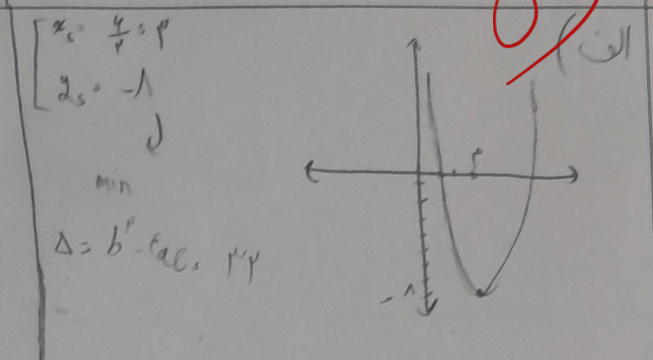 الف)
x_s = ۶/۲ = ۳
y_s = -۸
min
Δ = b² - ۴ac = ۳۲
۳
-۸